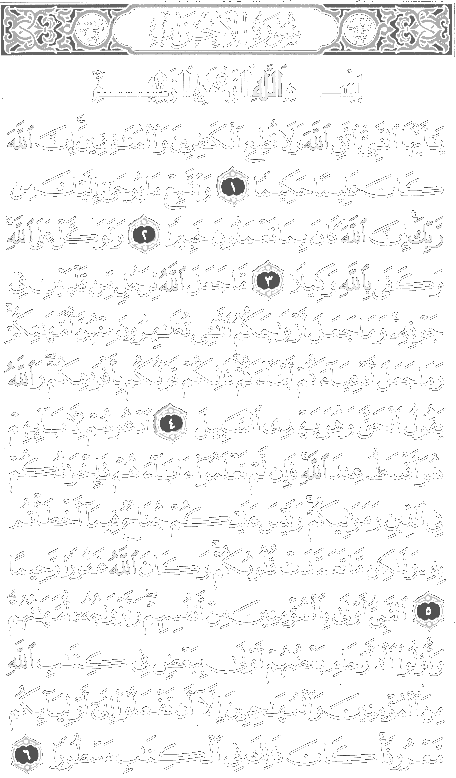 سُورَةُ الأَحْزَابِ
بِسْمِ ٱللَّهِ ٱلرَّحْمَٰنِ ٱلرَّحِيمِ
يَٰٓأَيُّهَا ٱلنَّبِيُّ ٱتَّقِ ٱللَّهَ وَلَا تُطِعِ ٱلْكَٰفِرِينَ وَٱلْمُنَٰفِقِينَ إِنَّ ٱللَّهَ
كَانَ عَلِيمًا حَكِيمًا ١ وَٱتَّبِعْ مَا يُوحَىٰٓ إِلَيْكَ مِن
رَّبِّكَ إِنَّ ٱللَّهَ كَانَ بِمَا تَعْمَلُونَ خَبِيرًا ٢ وَتَوَكَّلْ عَلَى ٱللَّهِ
وَكَفَىٰ بِٱللَّهِ وَكِيلًا ٣ مَّا جَعَلَ ٱللَّهُ لِرَجُلٍ مِّن قَلْبَيْنِ فِي
جَوْفِهِۦ وَمَا جَعَلَ أَزْوَٰجَكُمُ ٱلَّٰٓـِٔي تُظَٰهِرُونَ مِنْهُنَّ أُمَّهَٰتِكُمْ
وَمَا جَعَلَ أَدْعِيَآءَكُمْ أَبْنَآءَكُمْ ذَٰلِكُمْ قَوْلُكُم بِأَفْوَٰهِكُمْ وَٱللَّهُ
يَقُولُ ٱلْحَقَّ وَهُوَ يَهْدِي ٱلسَّبِيلَ ٤ ٱدْعُوهُمْ لِأٓبَآئِهِمْ
هُوَ أَقْسَطُ عِندَ ٱللَّهِ فَإِن لَّمْ تَعْلَمُوٓا۟ ءَابَآءَهُمْ فَإِخْوَٰنُكُمْ
فِي ٱلدِّينِ وَمَوَٰلِيكُمْ وَلَيْسَ عَلَيْكُمْ جُنَاحٌ فِيمَآ أَخْطَأْتُم
بِهِۦ وَلَٰكِن مَّا تَعَمَّدَتْ قُلُوبُكُمْ وَكَانَ ٱللَّهُ غَفُورًا رَّحِيمًا
٥ ٱلنَّبِيُّ أَوْلَىٰ بِٱلْمُؤْمِنِينَ مِنْ أَنفُسِهِمْ وَأَزْوَٰجُهُۥٓ أُمَّهَٰتُهُمْ
وَأُو۟لُوا۟ ٱلْأَرْحَامِ بَعْضُهُمْ أَوْلَىٰ بِبَعْضٍ فِي كِتَٰبِ ٱللَّهِ
مِنَ ٱلْمُؤْمِنِينَ وَٱلْمُهَٰجِرِينَ إِلَّآ أَن تَفْعَلُوٓا۟ إِلَىٰٓ أَوْلِيَآئِكُم
مَّعْرُوفًا كَانَ ذَٰلِكَ فِي ٱلْكِتَٰبِ مَسْطُورًا ٦